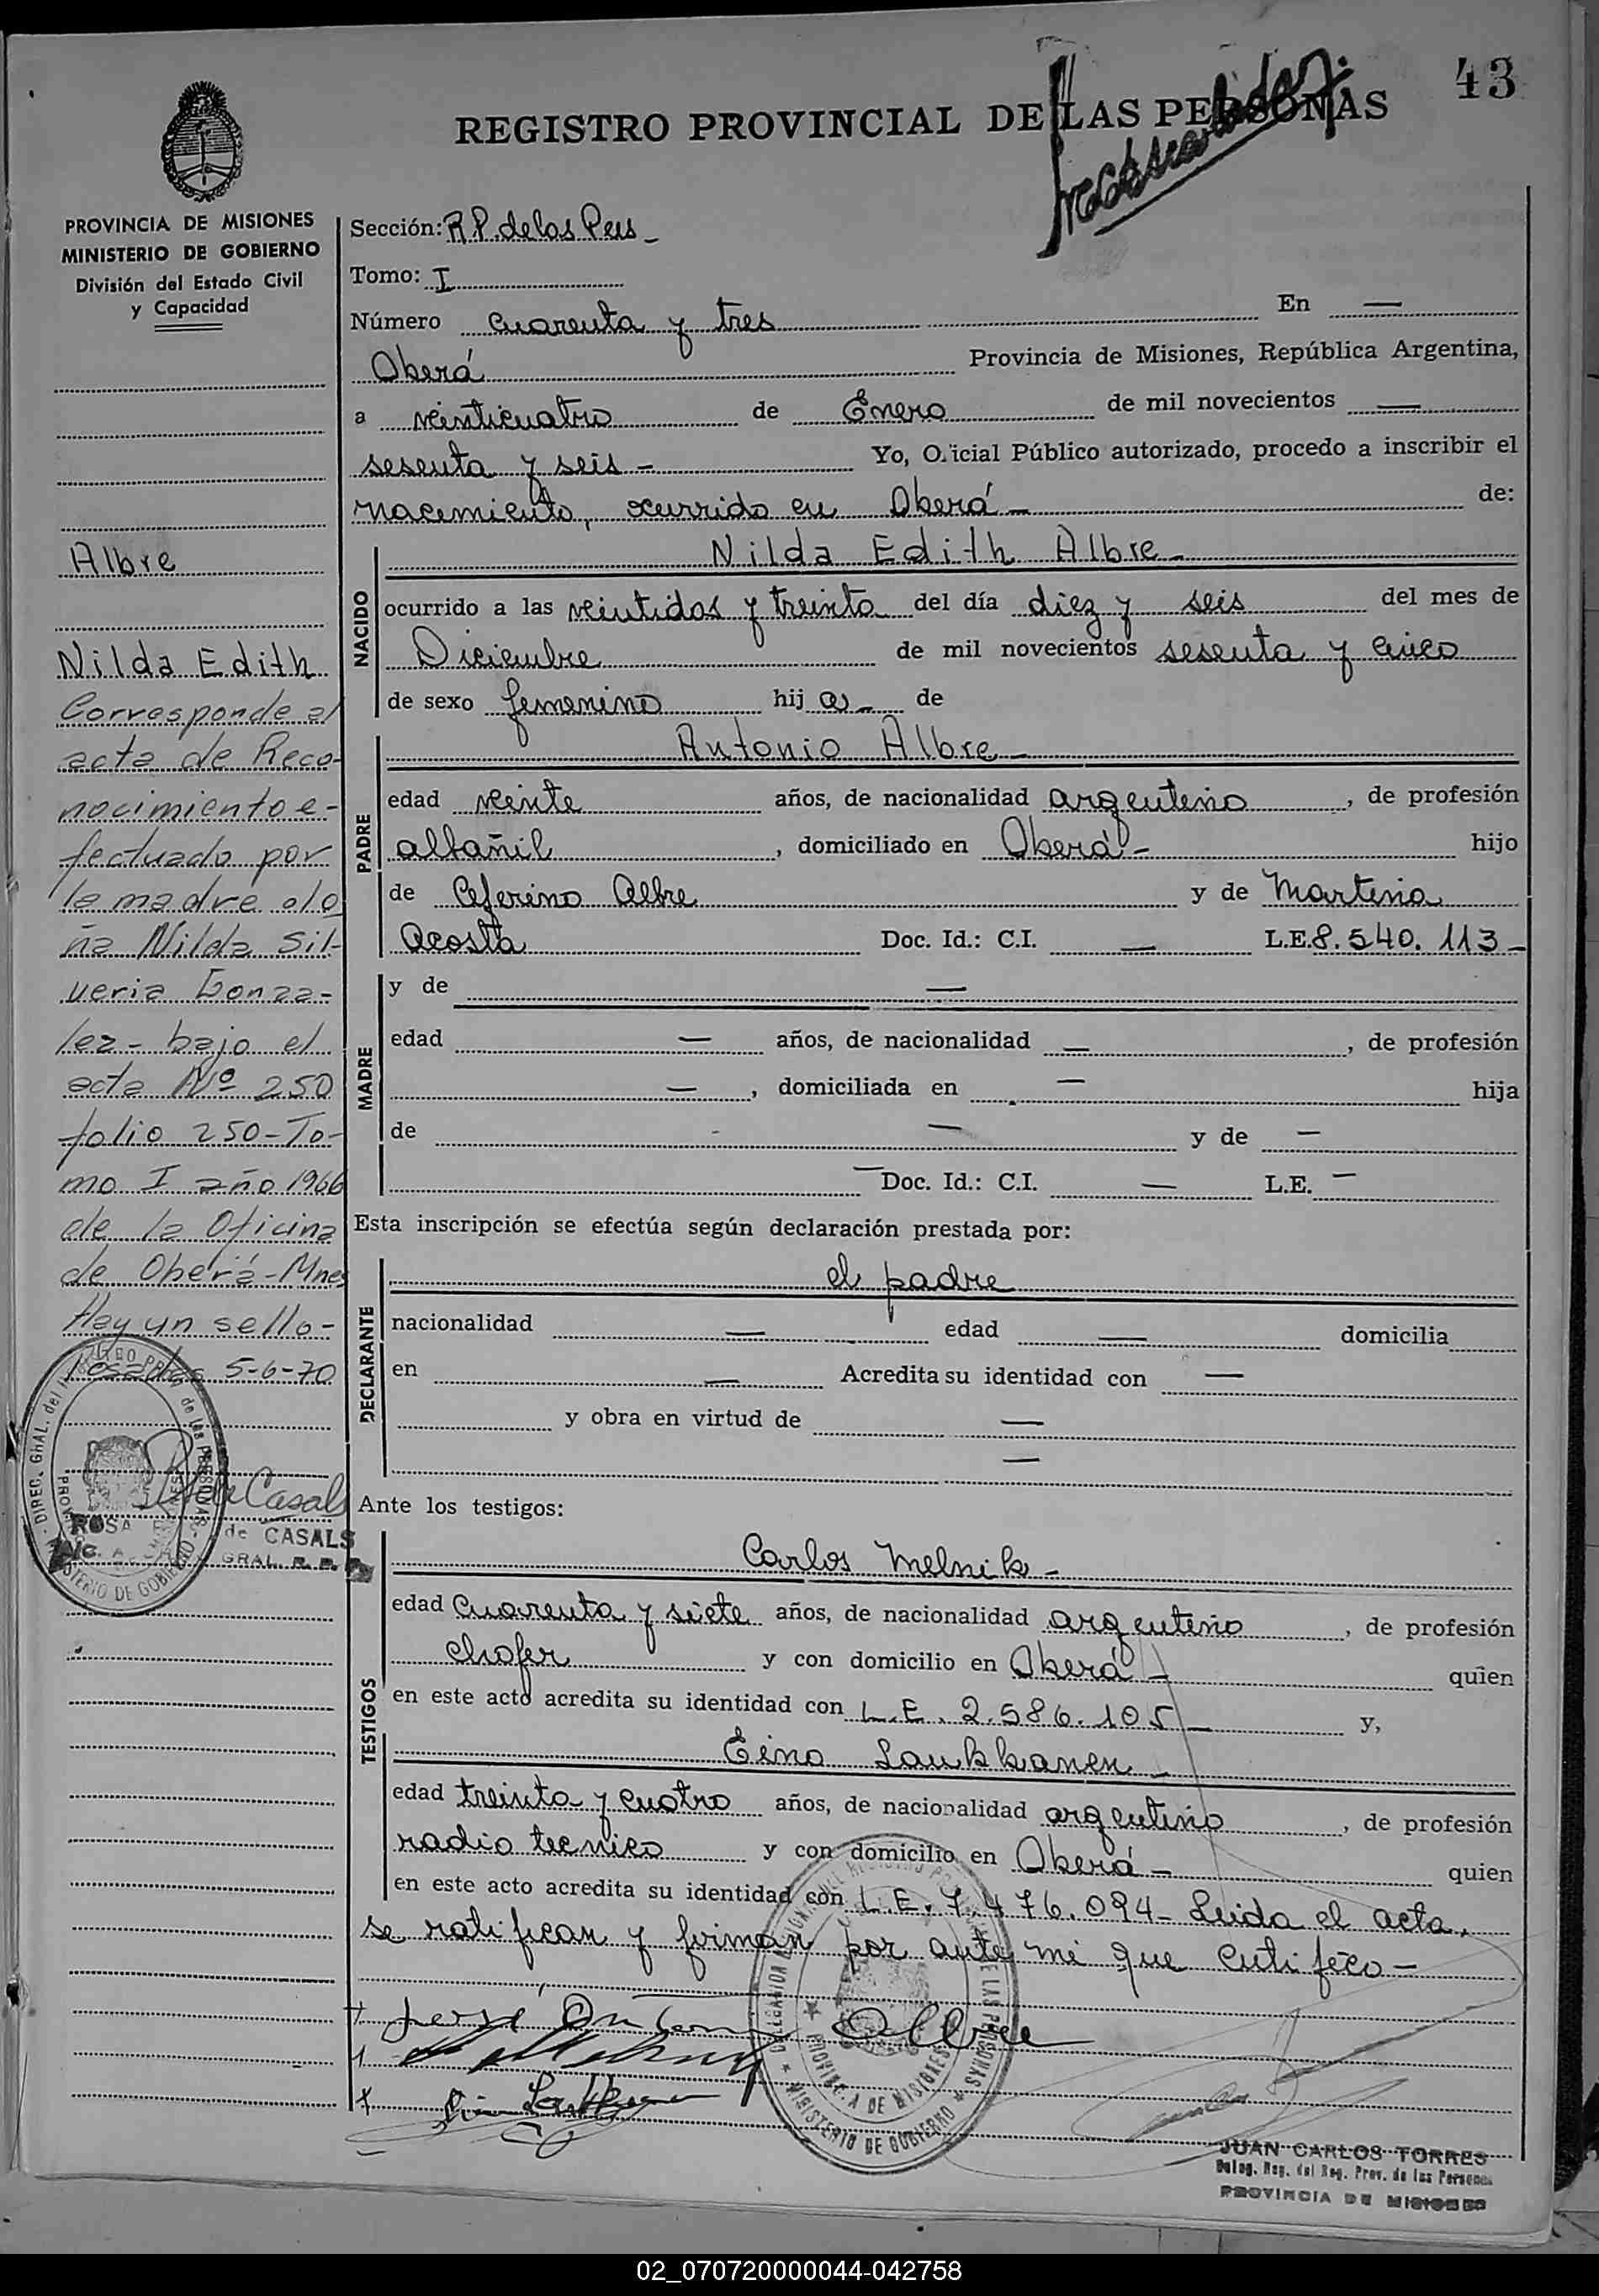 43
REGISTRO PROVINCIAL DE LAS PERSONAS
PROVINCIA DE MISIONES
MINISTERIO DE GOBIERNO
División del Estado Civil
y Capacidad
Albre
Nilda Edith
Corresponde al
acta de Reco-
nocimiento e-
fectuado por
la madre do
ña Nilda Sil-
veria Gonza-
lez - bajo el
acta Nº 250
folio 250 - To-
mo I año 1966
de la Oficina
de Oberá - Mnes
Hay un sello -
Posadas 5-6-70
de Casals
ROSA E. de CASALS
GRAL. R. P.
Sección: R.P. de las Pers -
Tomo: I
Número cuarenta y tres En —
Oberá Provincia de Misiones, República Argentina,
a veinticuatro de Enero de mil novecientos —
sesenta y seis - Yo, Oficial Público autorizado, procedo a inscribir el
nacimiento, ocurrido en Oberá - de:
NACIDO
Nilda Edith Albre -
ocurrido a las veintidos y treinta del día diez y seis del mes de
Diciembre de mil novecientos sesenta y cinco
de sexo femenino hij a - de
PADRE
Antonio Albre -
edad veinte años, de nacionalidad argentino, de profesión
albañil, domiciliado en Oberá - hijo
de Ceferino Albre y de Martina
Acosta Doc. Id.: C.I. — L.E. 8.540.113 -
MADRE
y de —
edad — años, de nacionalidad —, de profesión
—, domiciliada en — hija
de — y de —
— Doc. Id.: C.I. — L.E. —
Esta inscripción se efectúa según declaración prestada por:
DECLARANTE
el padre
nacionalidad — edad — domicilia
en — Acredita su identidad con —
y obra en virtud de —
—
Ante los testigos:
TESTIGOS
Carlos Melnik -
edad cuarenta y siete años, de nacionalidad argentino, de profesión
chofer y con domicilio en Oberá - quien
en este acto acredita su identidad con L.E. 2.586.105 - y,
Eino Laukkanen -
edad treinta y cuatro años, de nacionalidad argentino, de profesión
radio tecnico y con domicilio en Oberá - quien
en este acto acredita su identidad con L.E. 7.476.094 - Leida el acta,
se ratifican y firman por ante mi que certifico -
PROVINCIA DE MISIONES
MINISTERIO DE GOBIERNO
JUAN CARLOS TORRES
Deleg. Reg. del Reg. Prov. de las Personas
PROVINCIA DE MISIONES
02_070720000044-042758